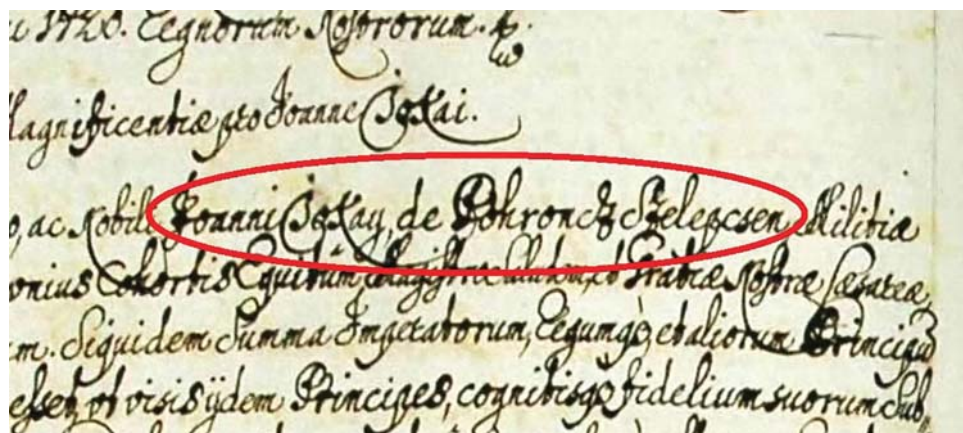 1720. Regnorum Nostrorum.
Magnificentiæ pro Joanne Jokai.
ac Nobili Joanni Jokay, de Pohroncz Szelepcsen Militiæ
onius Cohortis Equitum, Magistro Salutem, et Gratiæ Nostræ Cæsareæ,
m. Siquidem Summa Imperatorum, Regumqꝫ, et aliorum Principu
esset, ut visis ijdem Principes, cognitisqꝫ fidelium suorum Sub